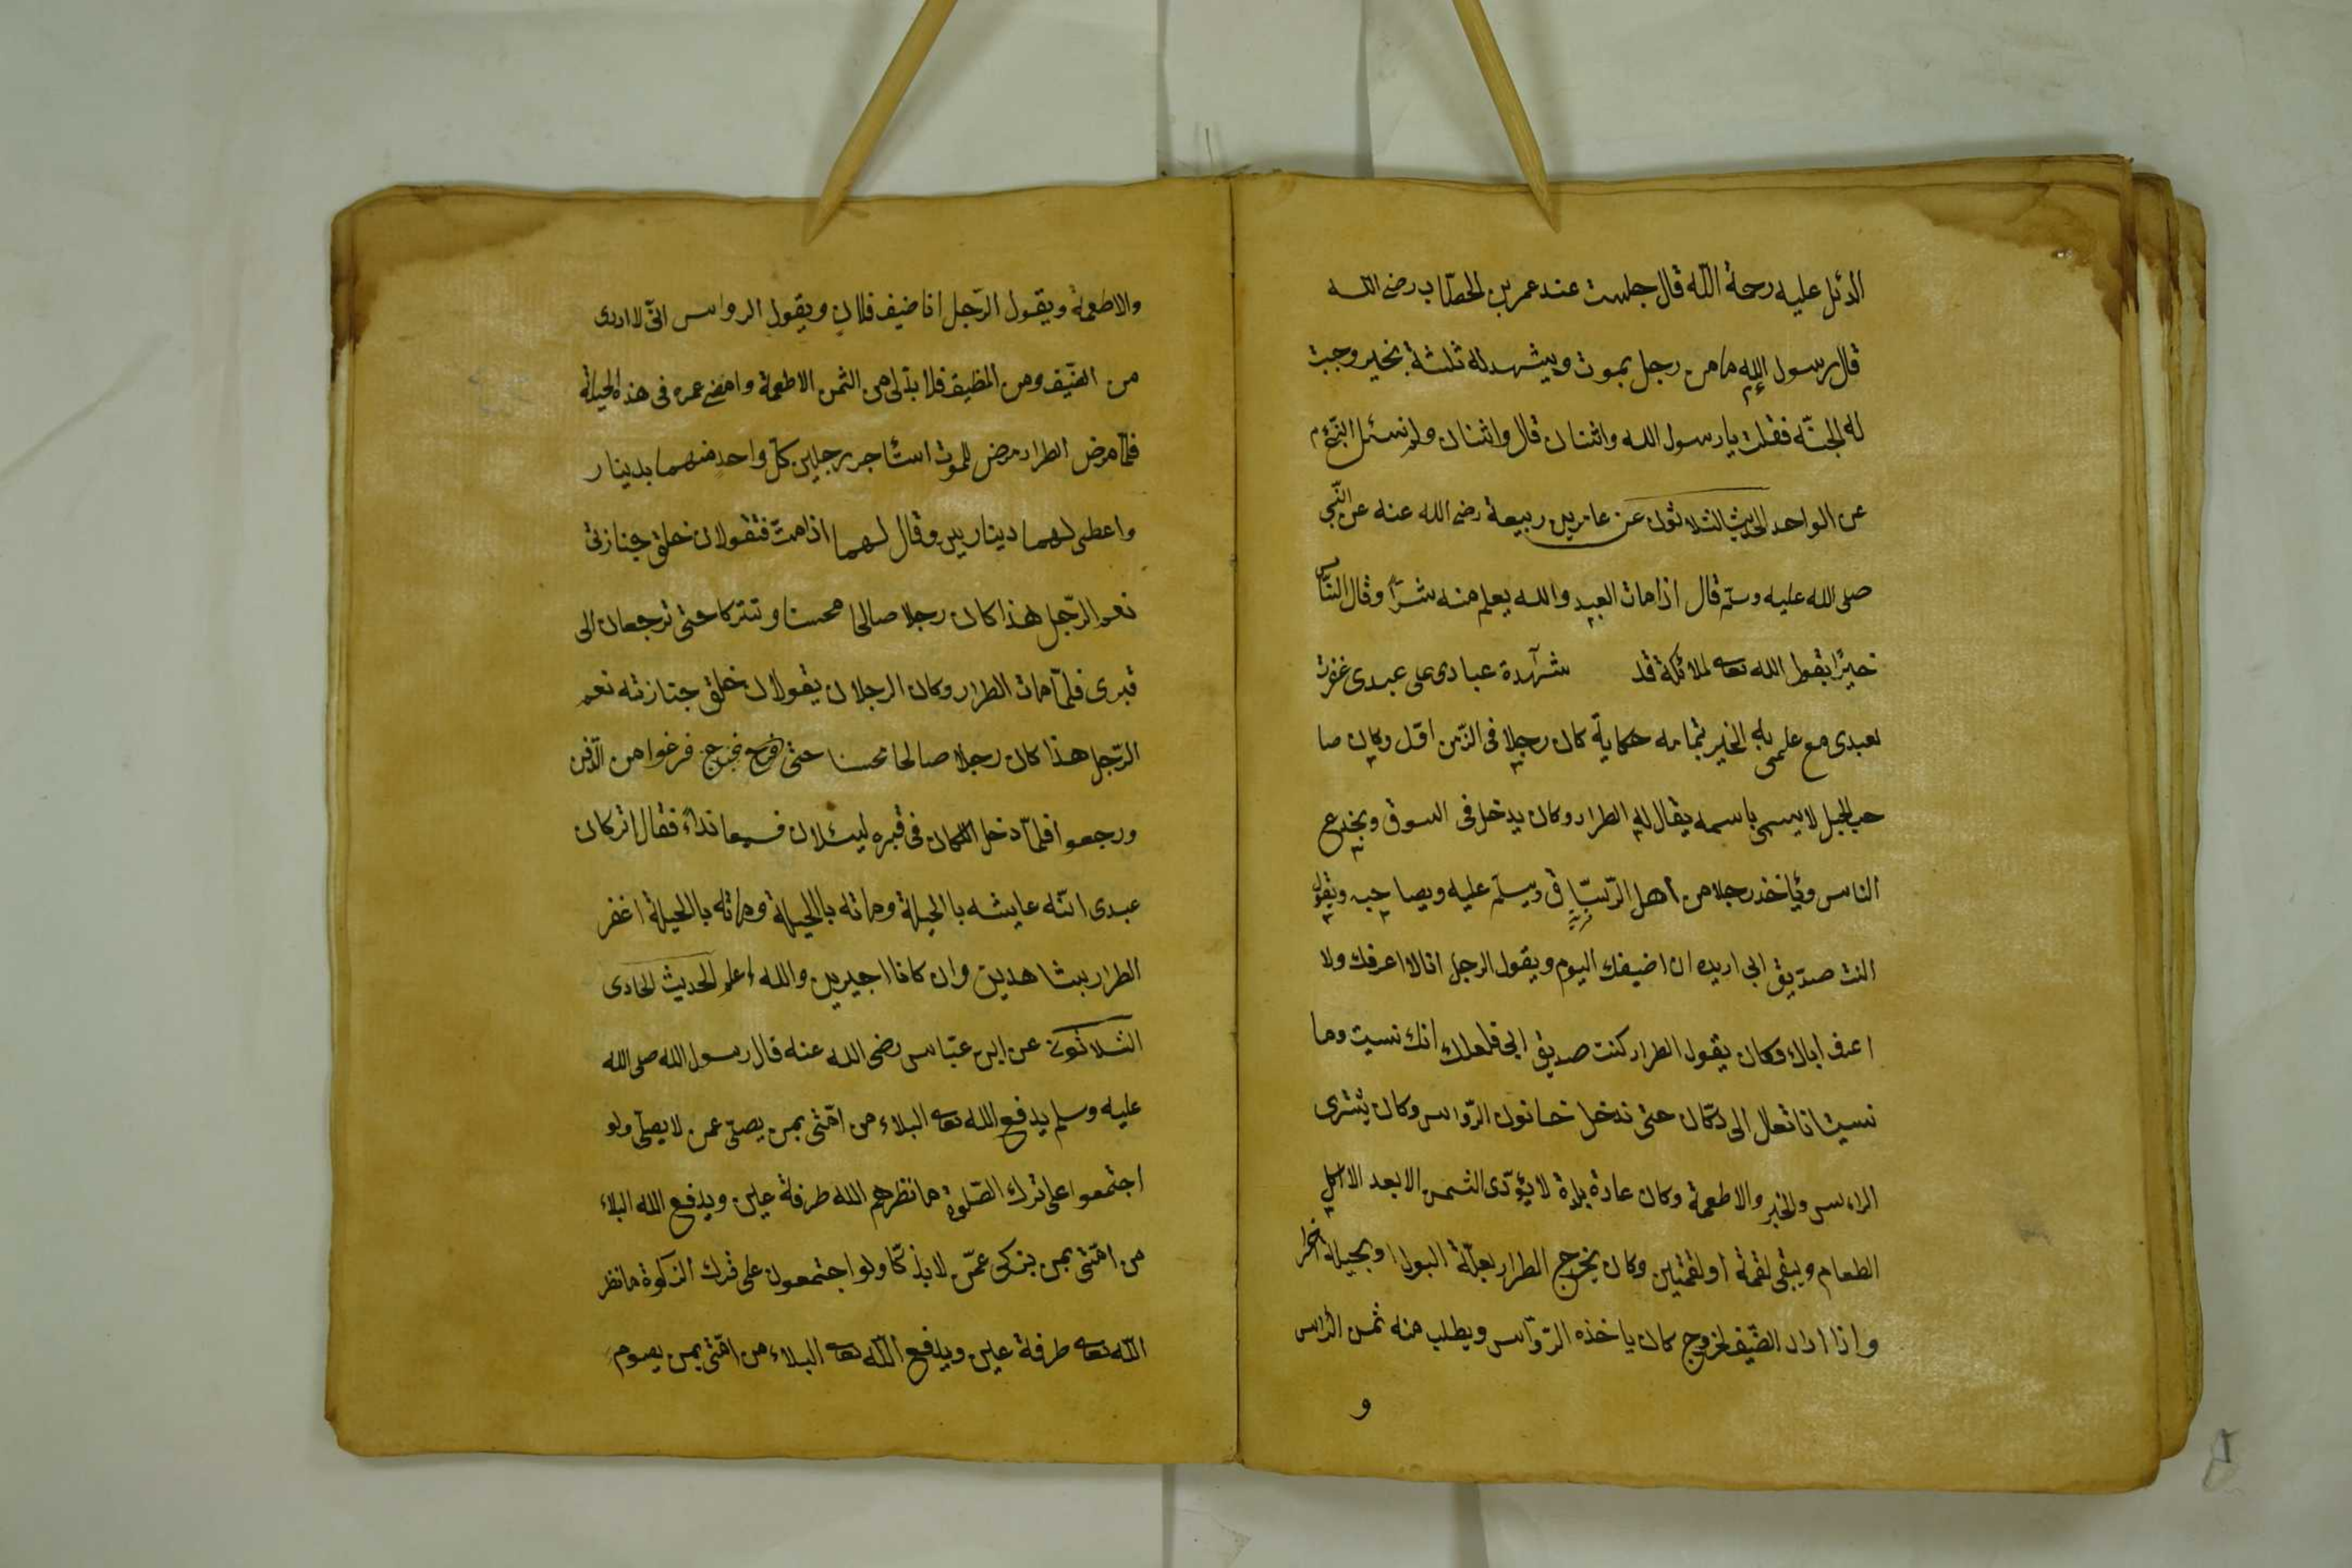 الدئل عليه رحمة الله قال جلست عند عمر بن الخطاب رضى الله
قال رسول الله ما من رجل يموت ويشهد له ثلثة بخير وجبت
له الجنّة فقلت يا رسول الله واثنان قال واثنان ولم نسئل النبّى م
عن الواحد الحديث الثلاثون عن عامر بن ربيعة رضى الله عنه عن النّبى
صلى الله عليه وسلّم قال اذا مات العبد والله يعلم منه شرّا وقال النّاس
خيرًا يقول الله تعا لملائكة قد شهدة عبادى على عبدى غفرت
لعبدى مع علمى به الخير تمامه حكاية كان رجلا فى الزّمن اوّل وكان صا
حب الحبل لا يسمى باسمه يقال له الطرار وكان يدخل فى السوق ويخدع
الناس وياخذ رجلا من اهل الرّستاق ويسلّم عليه ويصاحبه ويقول
انت صدّيق ابى اريد ان اضيفك اليوم ويقول الرجل انا لا اعرفك ولا
اعرف اباك فكان يقول الطرار كنت صديق ابى فلعلك انك نسيت وما
نسيت انا تعال الى دكّان حتى ندخل خانون الرّواس وكان يشترى
الراس والخبز والاطعمة وكان عادة بلدة لا يؤدّى الثمن الا بعد الاكل
الطعام ويبقى لقمة او لقمتين وكان يخرج الطرار بعلّة البول او بحيلة اخرا
واذا اراد الضّيف لخروج كان ياخذه الرّوّاس ويطلب منه ثمن الراس
و
والاطعمة ويقول الرّجل انا ضيف فلان ويقول الرواس انّى لا ادرى
من الضّيف ومن المظيف فلا بدّ لى من الثمن الاطعمة وامضى عمره فى هذه الحيلة
فلمّا مرض الطرار مرض للموت استأجر رجلين كلّ واحد منهما بدينار
واعطى لهما دينارين وقال لهما اذا متّ فتقولان خلق جنازتى
نعم الرّجل هذا كان رجلا صالحا محسنا وتتركا حتى ترجعان الى
قبرى فلمّا مات الطرار وكان الرجلان يقولان خلق جنازته نعم
الرّجل هذا كان رجلا صالحا محسنا حتى فرغوا من الدّفن
ورجعوا فلمّا دخل الملكان فى قبره ليسئلان فسمعا نداء فقال اتركان
عبدى انّه عايشه بالحيلة وماته بالحيلة وماته بالحيلة اغفر
الطرار بشاهدين وان كانا اجيرين والله اعلم الحديث الحادى
الثلاثون عن ابن عبّاس رضى الله عنه قال رسول الله صلى الله
عليه وسلم يدفع الله تعا البلاء من امّتى بمن يصلّى عمن لا يصلّى ولو
اجتمعوا على ترك الصّلوة ما نظرهم الله طرفة عين ويدفع الله البلاء
من امّتى بمن يزكى عمّن لا يذكّا ولو اجتمعون على ترك الزكوة ما نظر
الله تعا طرفة عين ويدفع الله تعا البلاء من امّتى بمن يصوم